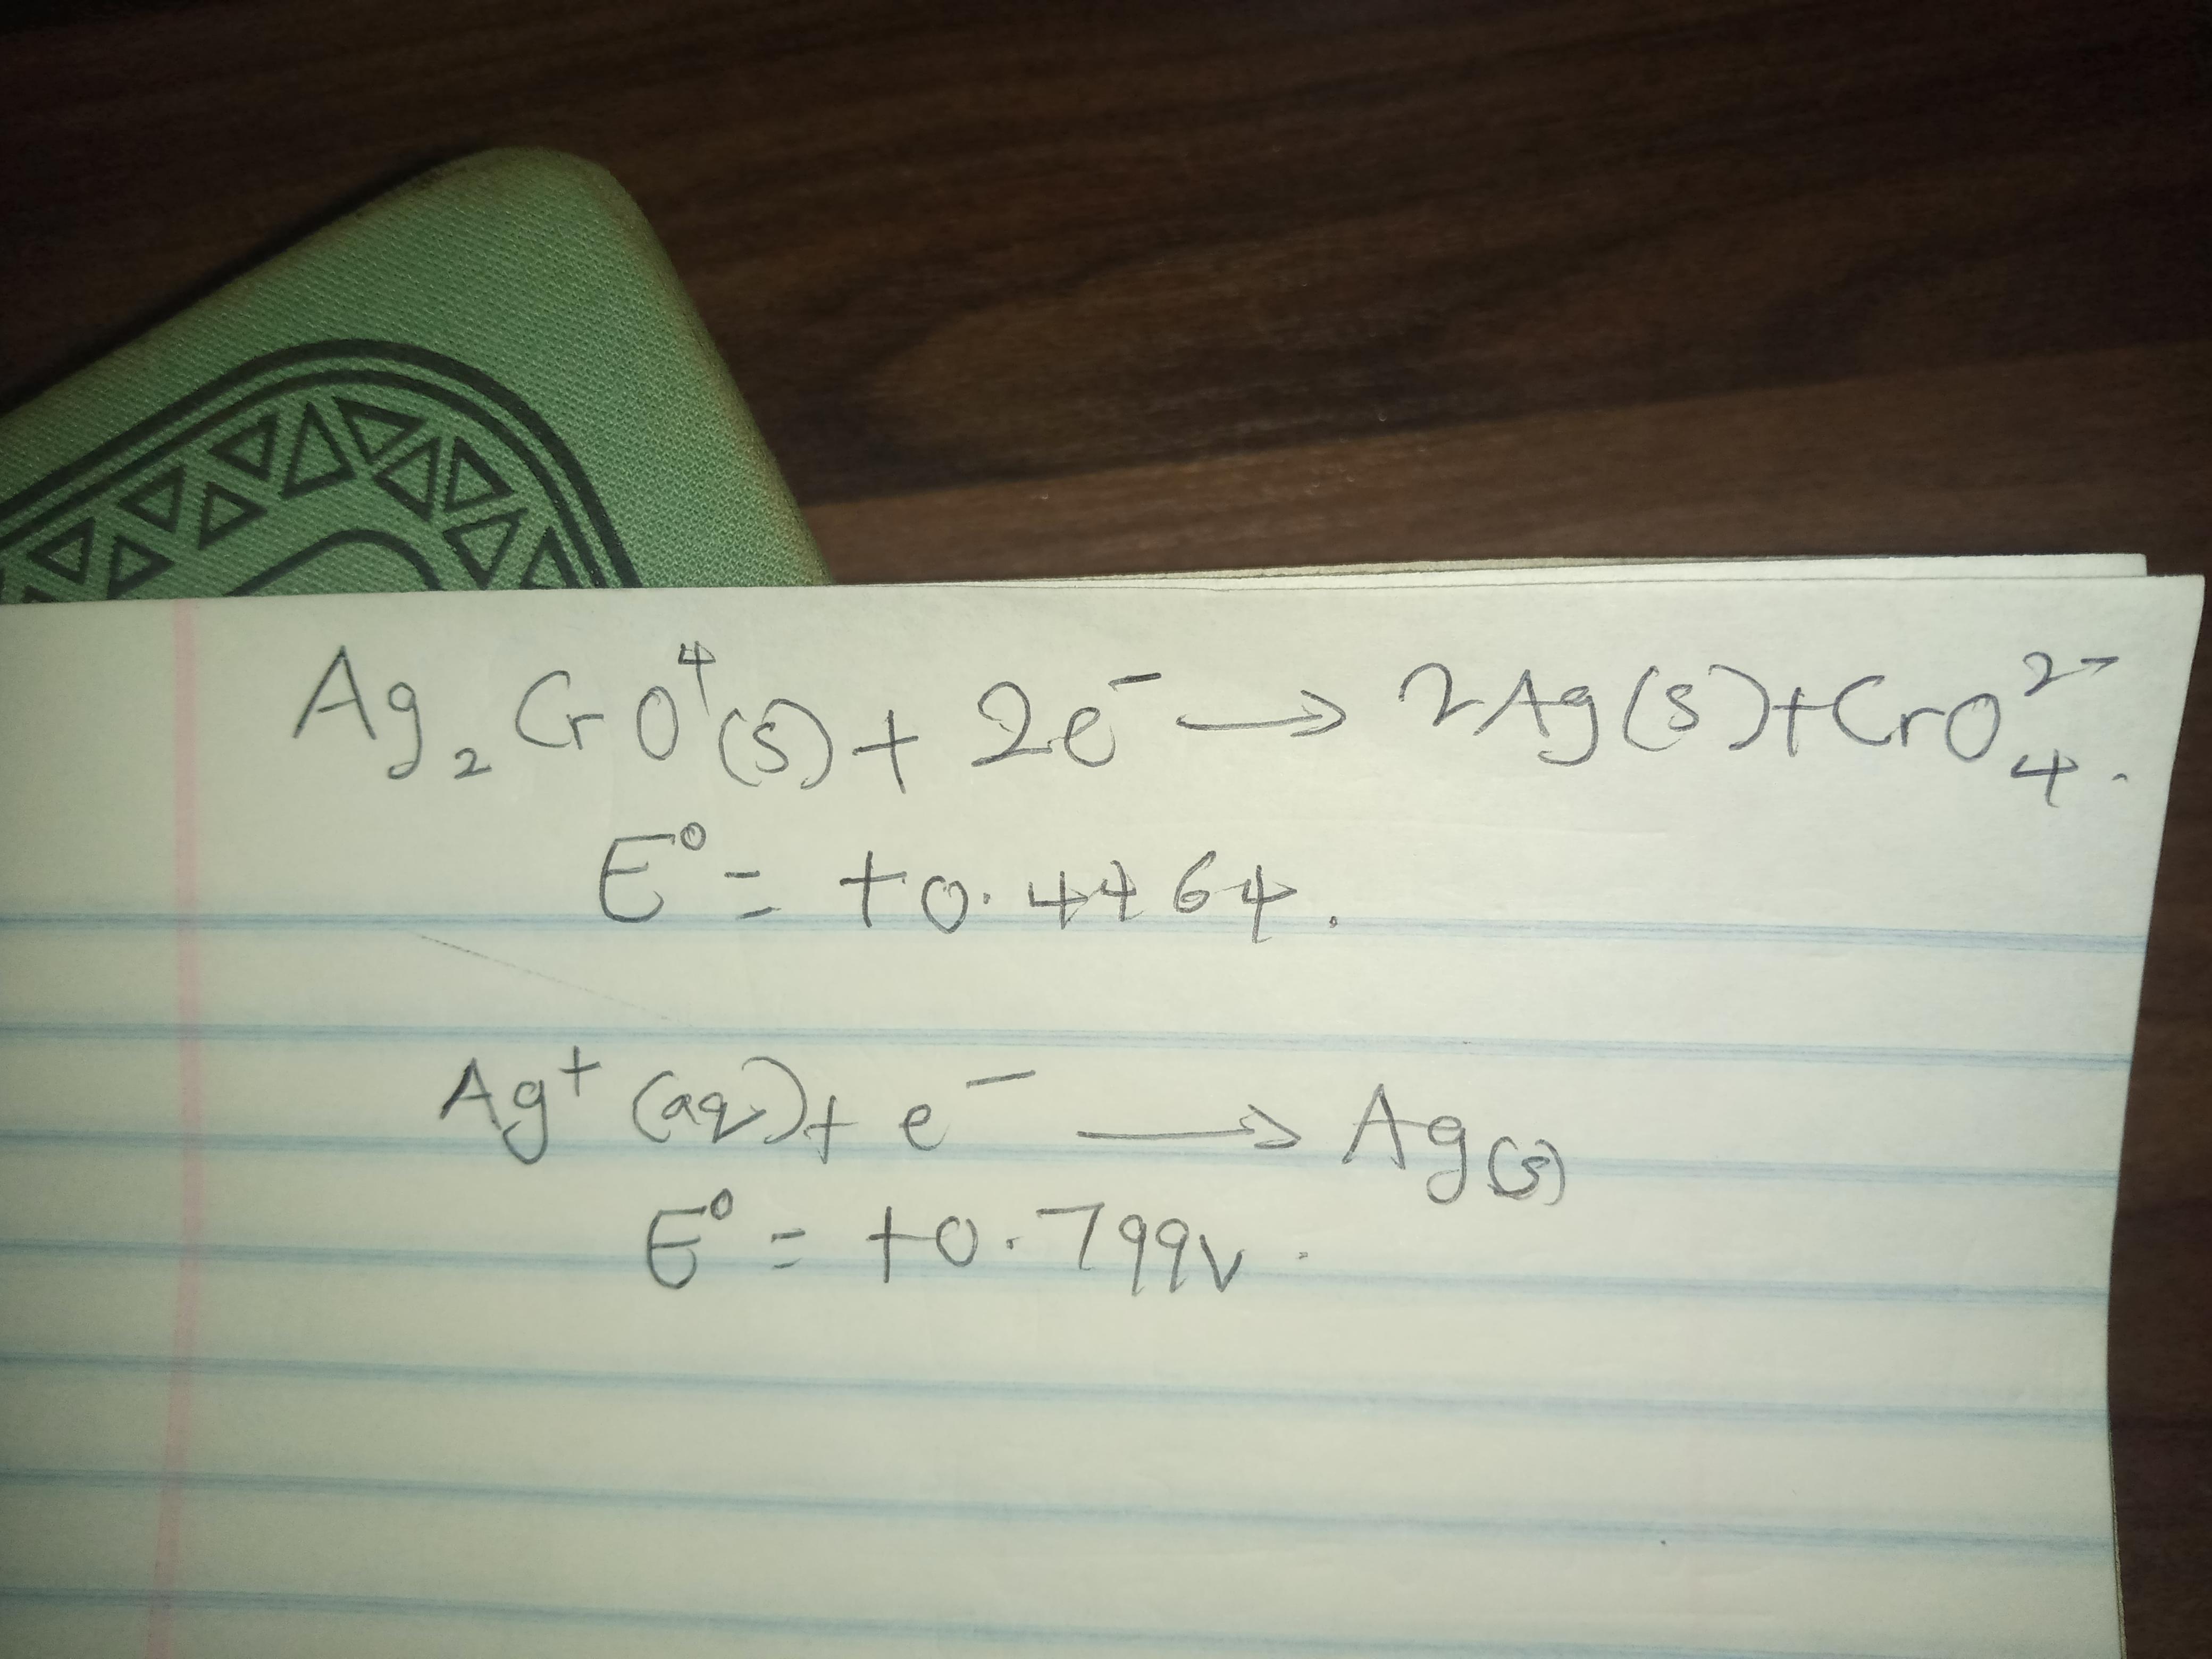 Ag₂CrO⁴(s) + 2e⁻ → 2Ag(s) + CrO₄²⁻.
E° = +0.4464.
Ag⁺(aq) + e⁻ → Ag(s)
E° = +0.799v.